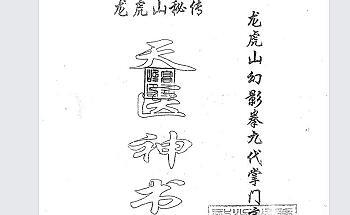 龙虎山秘传
天医神书
龙虎山幻影拳九代掌门